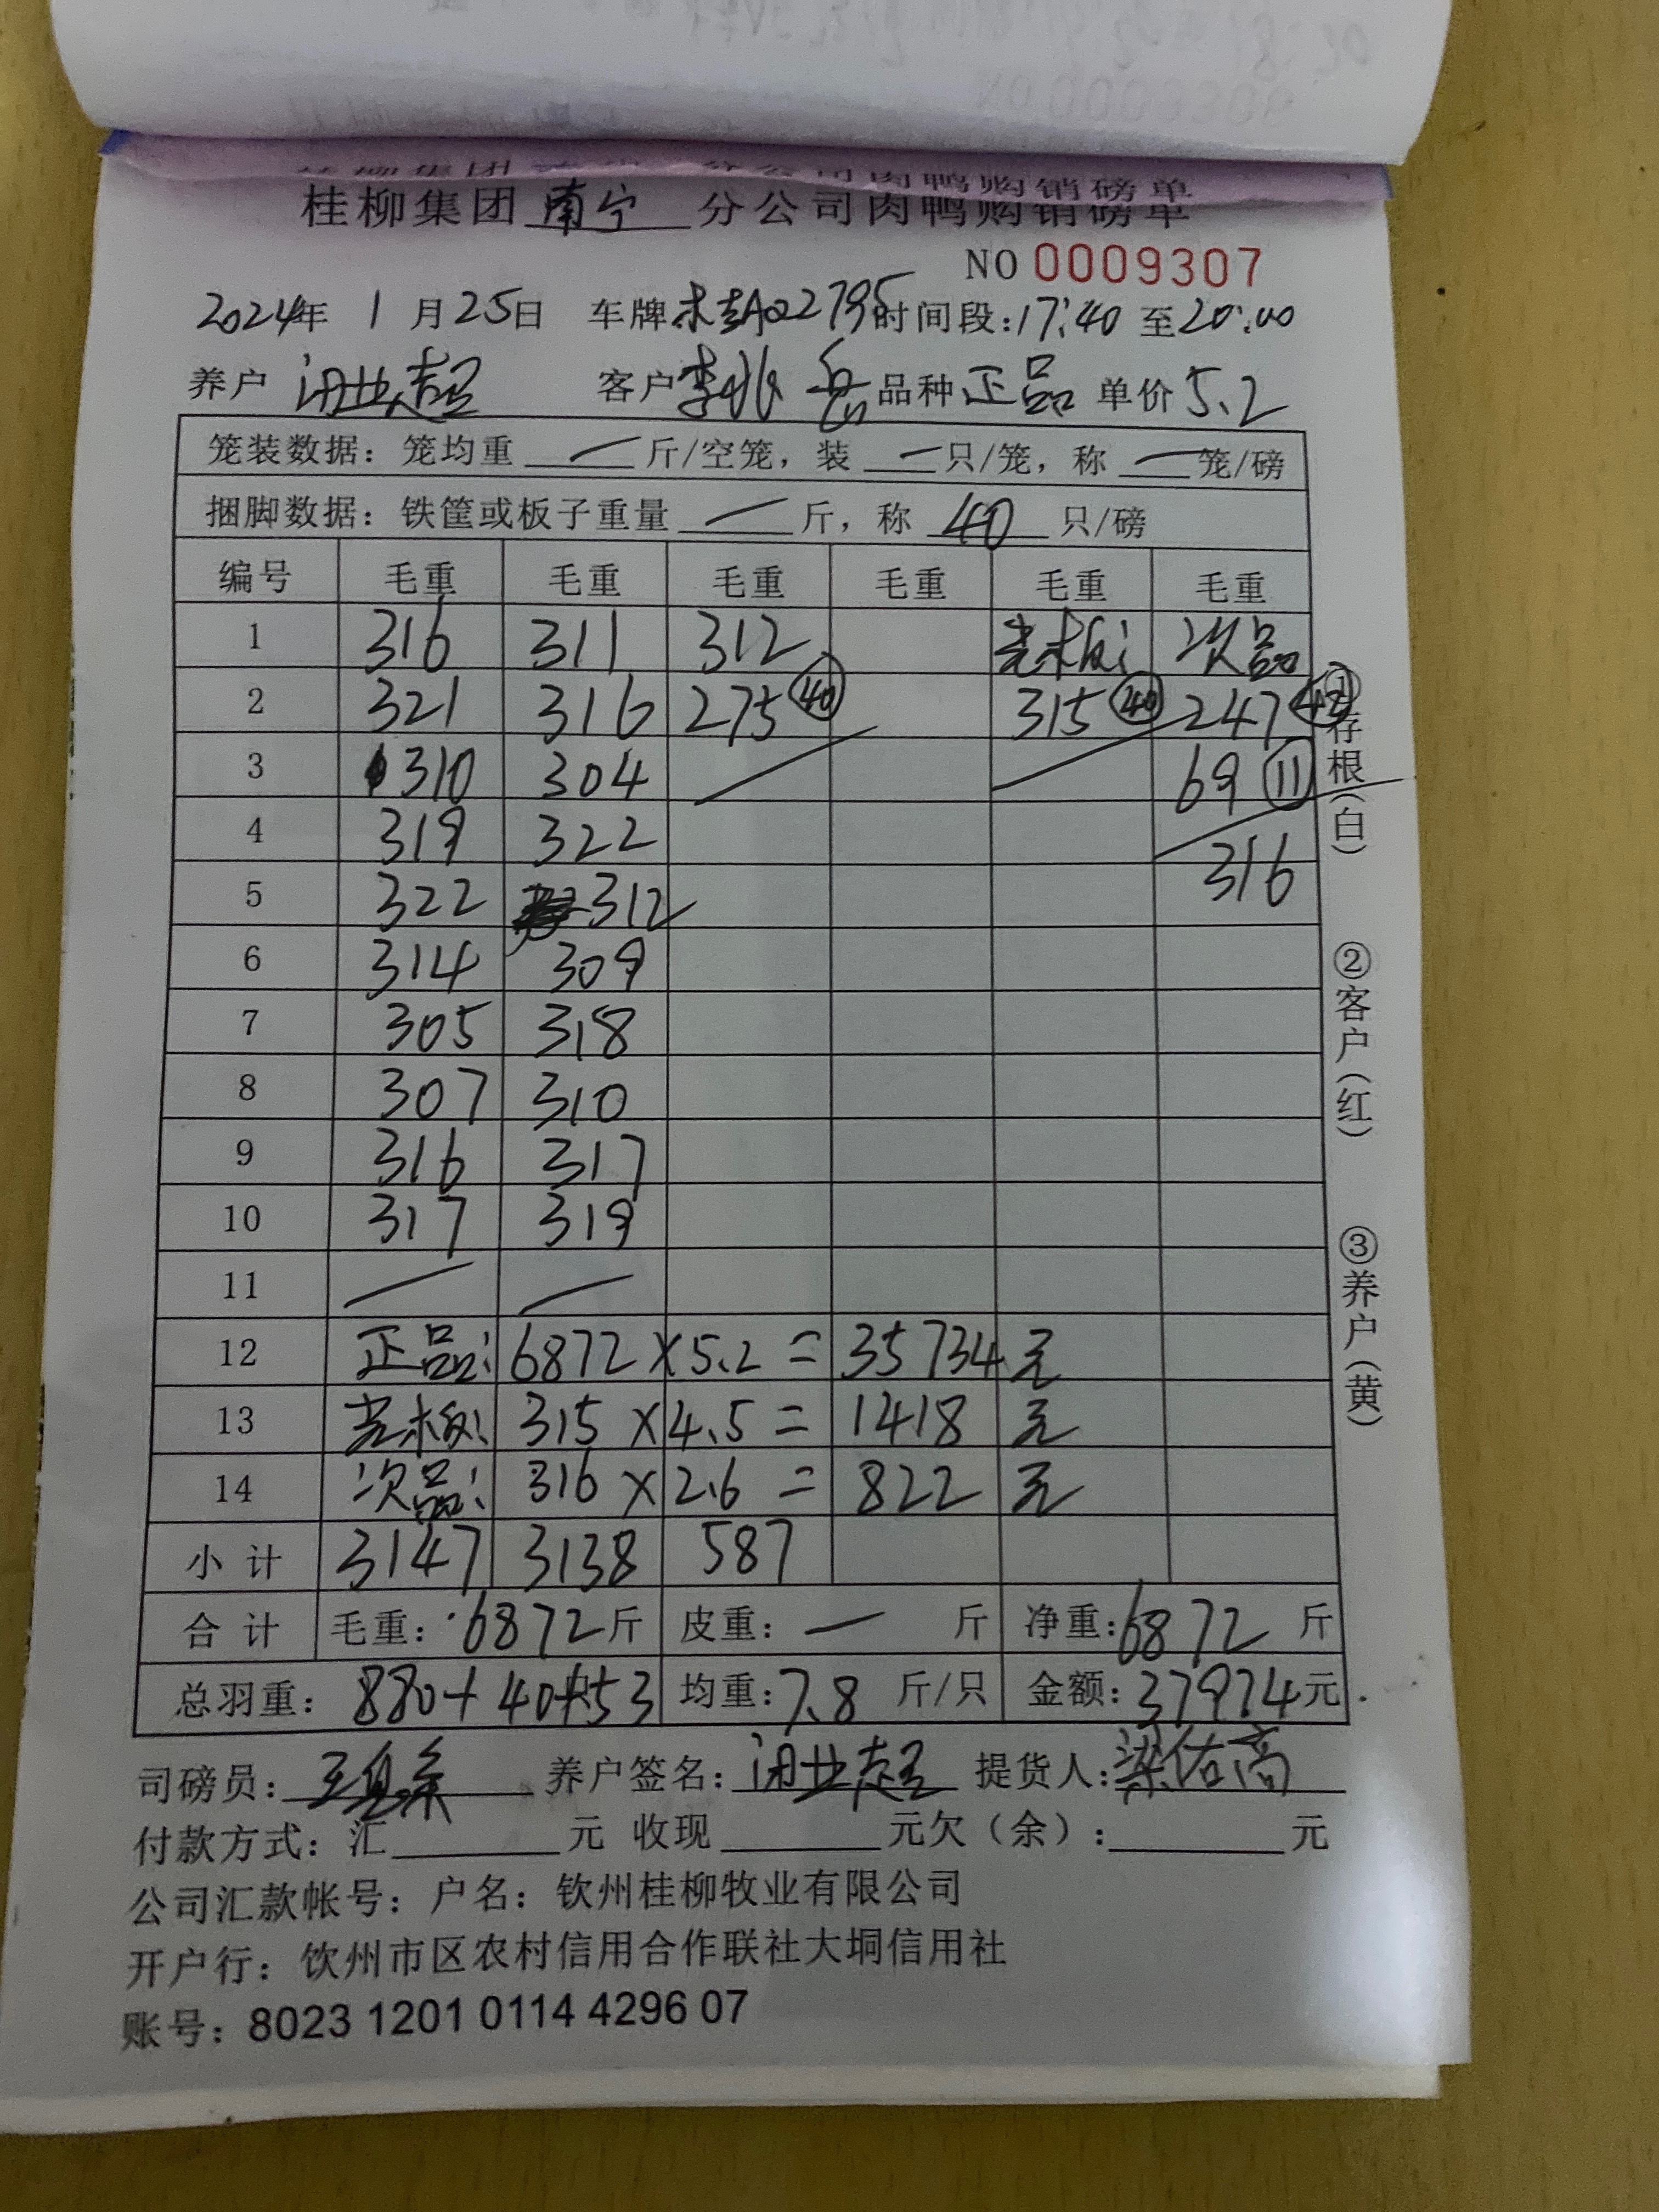 桂柳集团 南宁 分公司肉鸭购销磅单
NO 0009307
2024年 1 月 25日 车牌 桂A02795 时间段:17:40 至20:00
养户 闭业超 客户 李 品种 正品 单价 5.2
笼装数据: 笼均重 — 斤/空笼, 装 — 只/笼, 称 — 笼/磅
捆脚数据: 铁筐或板子重量 — 斤, 称 40 只/磅
编号 毛重 毛重 毛重 毛重 毛重 毛重
1 316 311 312 光板: 次品
2 321 316 275 40 315 40 247
3 310 304 69 11
4 319 322 316
5 322 312
6 314 309
7 305 318
8 307 310
9 316 317
10 317 319
11 — —
12 正品: 6872 × 5.2 = 35734 元
13 光板: 315 × 4.5 = 1418 元
14 次品: 316 × 2.6 = 822 元
小计 3147 3138 587
合计 毛重: 6872 斤 皮重: — 斤 净重: 6872 斤
总羽重: 880+40+53 均重: 7.8 斤/只 金额: 37974 元
司磅员: 养户签名: 闭业超 提货人: 梁佑高
付款方式: 汇 元 收现 元欠(余): 元
公司汇款帐号: 户名: 钦州桂柳牧业有限公司
开户行: 饮州市区农村信用合作联社大垌信用社
账号: 8023 1201 0114 4296 07
①存根(白)
②客户(红)
③养户(黄)